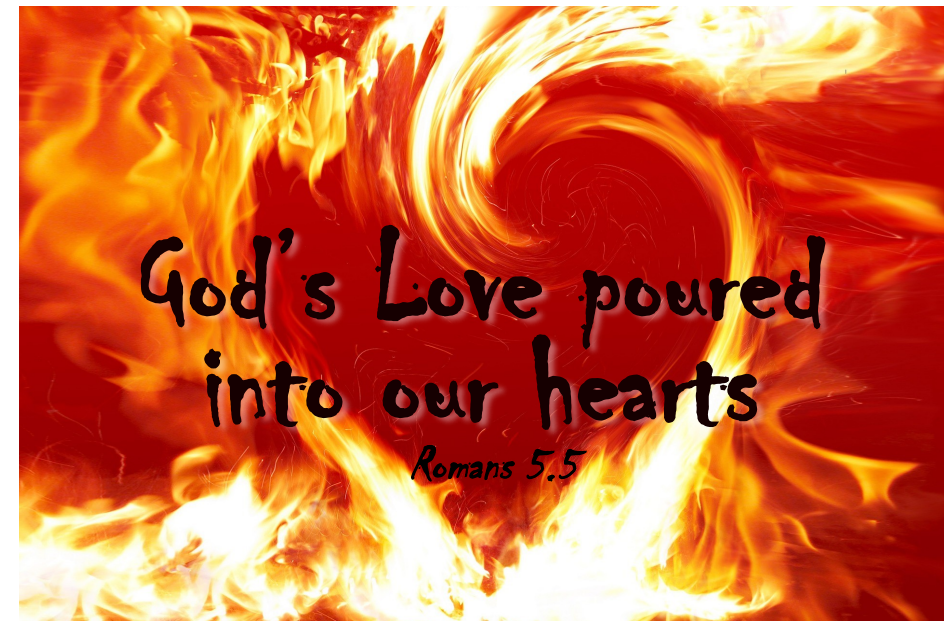 God's Love poured
into our hearts
Romans 5.5